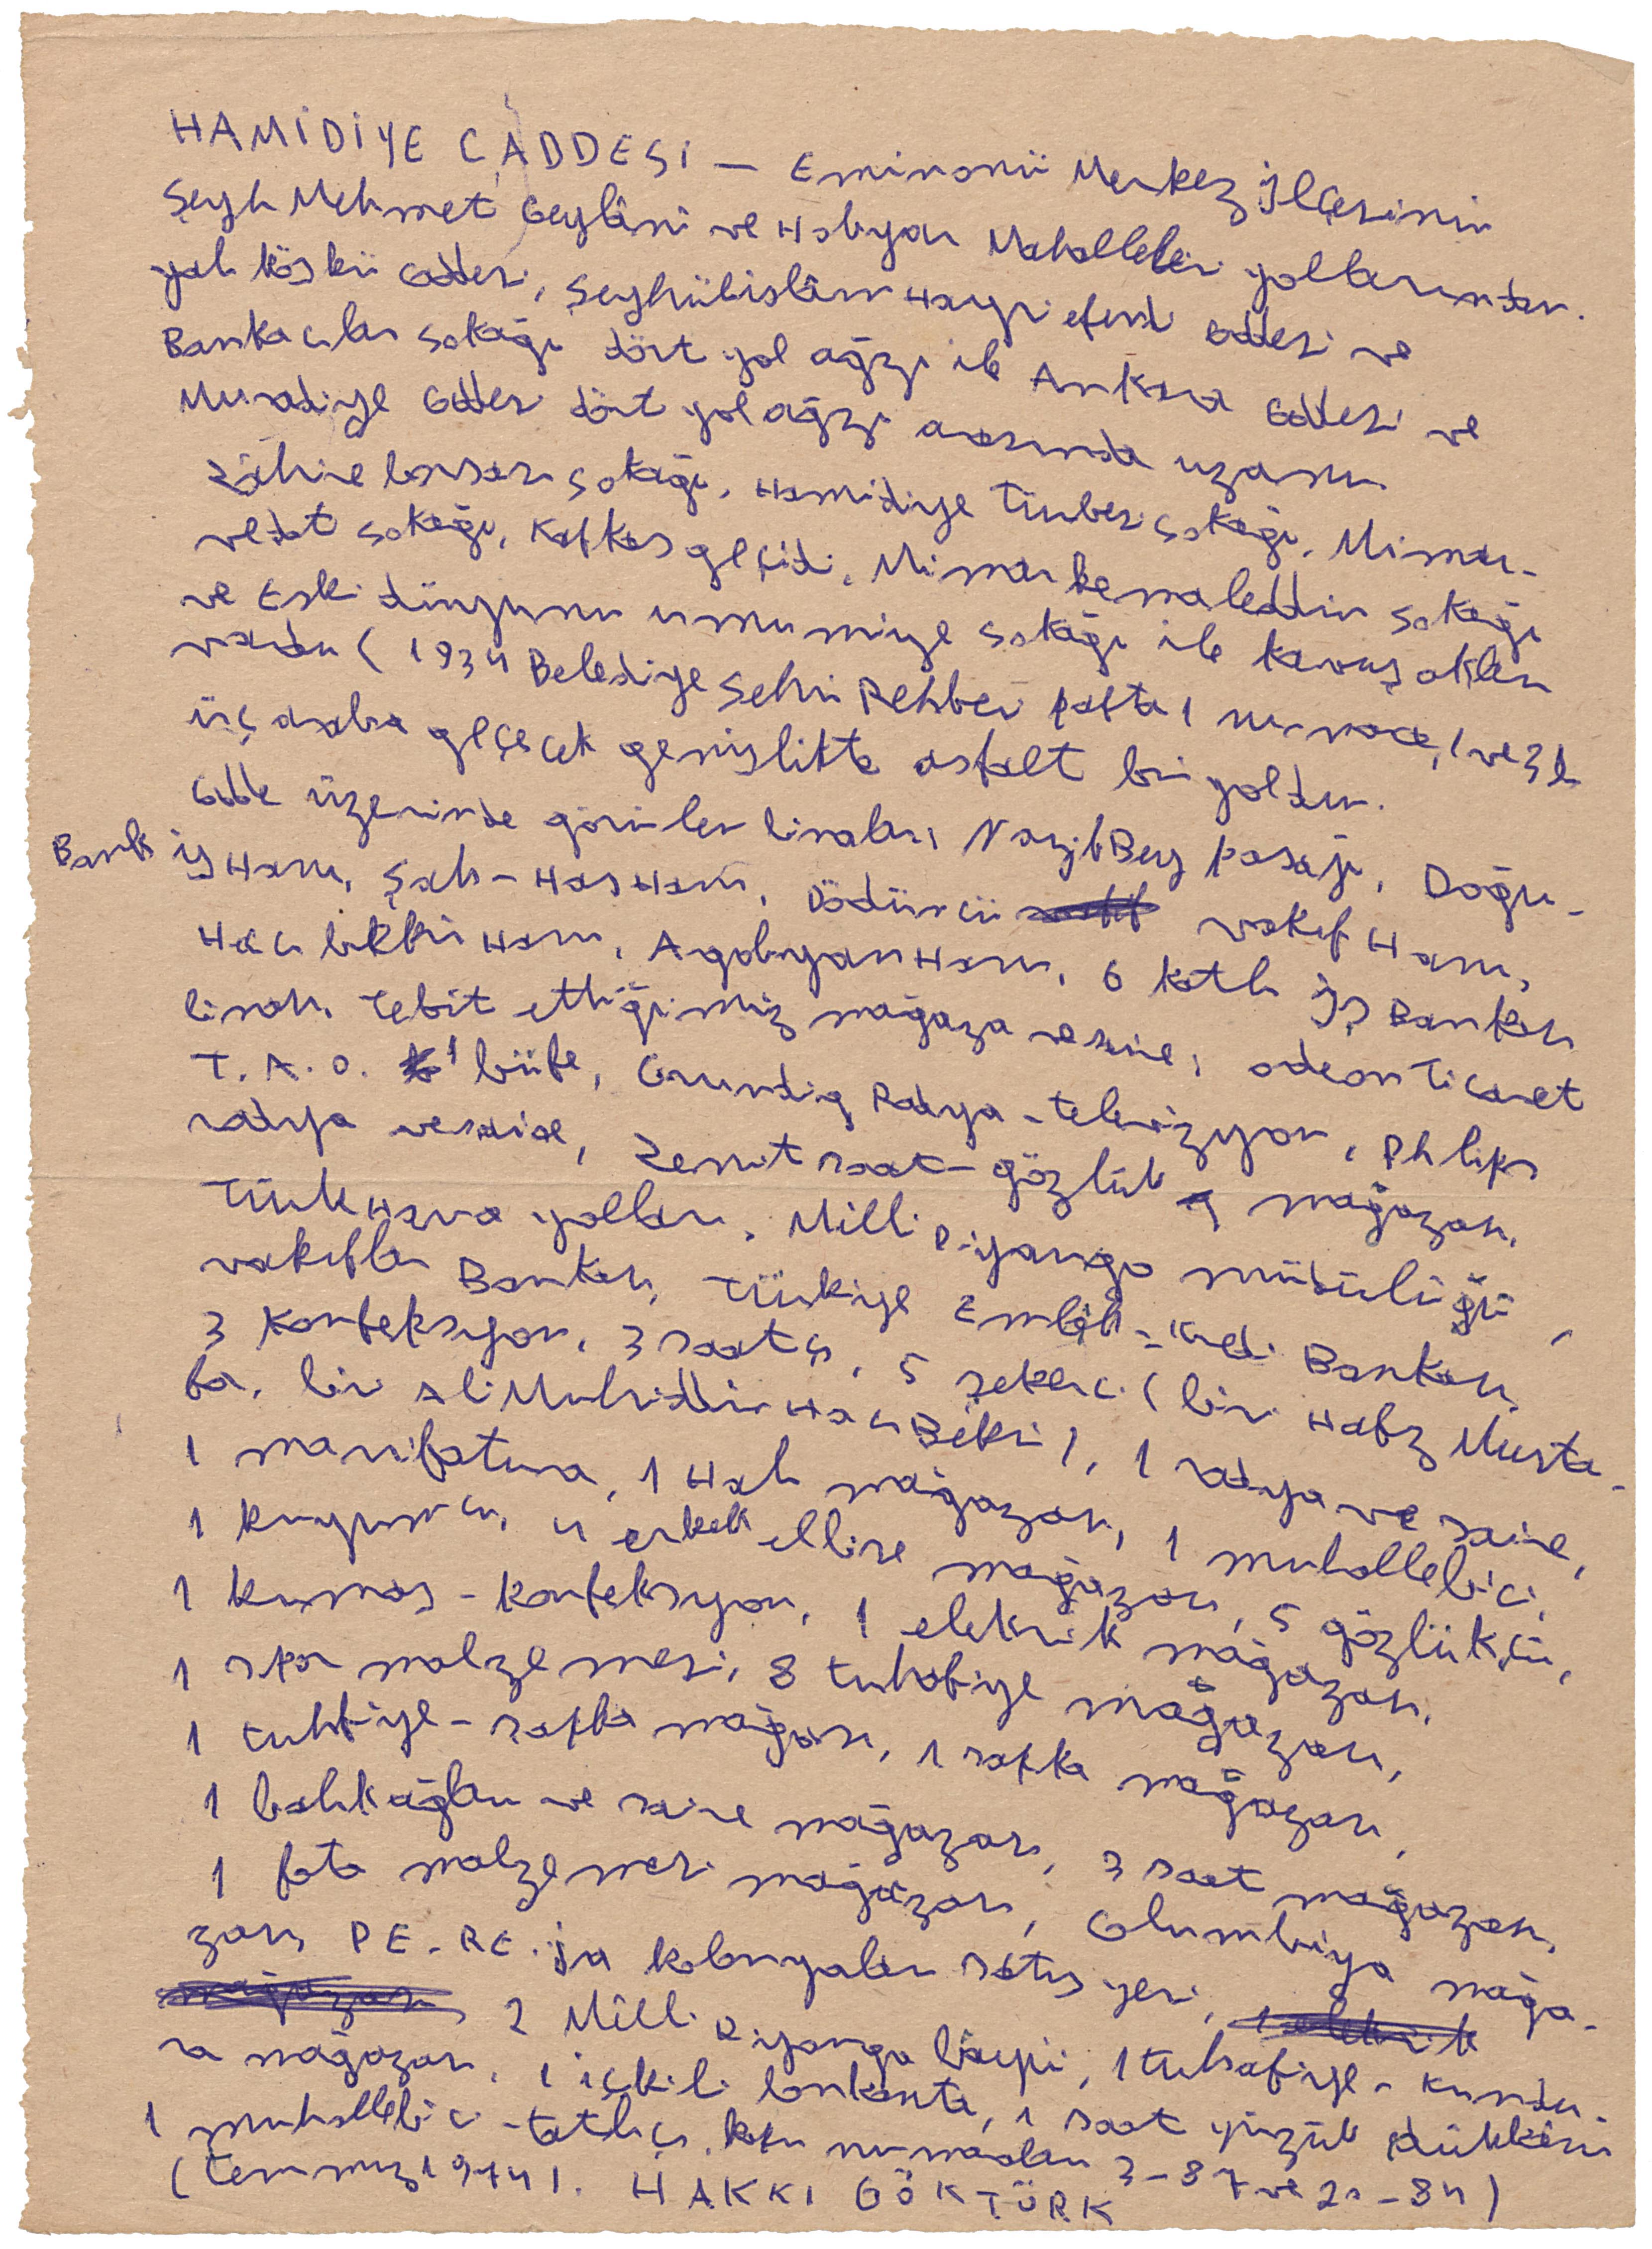 HAMİDİYE CADDESİ — Eminönü Merkez İlçesinin
Şeyh Mehmet Geylâni ve Hobyar Mahalleleri yollarından.
Yalı köşkü caddesi, Şeyhülislâm Hayri efendi caddesi ve
Bankacılar sokağı dört yol ağzı ile Ankara caddesi ve
Muradiye caddesi dört yol ağzı arasında uzanır
Zahire borsası sokağı, Hamidiye Türbesi sokağı, Mimar-
vedat sokağı, Kafkas geçidi, Mimar kemaleddin sokağı
ve Eski düyunu umumiye sokağı ile kavuşakları
vardır (1934 Belediye Şehir Rehberi pafta 1 numara, 1 ve
üç araba geçecek genişlikte asfalt bir yoldur.
Cadde üzerinde görülen binalar, Nazif Bey pasajı, Doğu-
Bank iş Hanı, Şah-Has Hanı, Dödüncü vakıf Hanı,
Hacı bekir Hanı, Agobyan Hanı, 6 katlı İş Bankası
binası. Tebit ettiğimiz mağaza vesaire, odeon Ticaret
T.A.O. 1 büfe, Grundig Radyo-televizyon, Philips
radyo vesaire, Zenit saat-gözlük mağazası,
Türk Hava yolları, Milli Piyango müdürlüğü,
vakıflar Bankası, Türkiye Emlâk-Kredi Bankası,
3 Konfeksiyon, 3 saatçı, 5 şekerci (biri Hafız Musta-
fa, biri Ali Muhiddin Hacı Bekir), 1 radyo ve saire,
1 manifatura, 1 Halı mağazası, 1 muhallebici,
1 kuyumcu, 4 erkek elbise mağazası, 5 gözlükçü,
1 kumaş-konfeksiyon, 1 elekrik mağazası,
1 spor malzemesi, 8 tuhafiye mağazası,
1 tuhfiye-şapka mağası, 1 şapka mağazası,
1 balık ağları ve saire mağazası, 3 saat mağazası,
1 foto malzemesi mağazası, Columbiya mağa-
zası, PE-RE-ja kolonyaları satış yeri,
2 Milli Piyango bayii, 1 tuhafiye-kundu-
ra mağazası, 1 içkili lonkanta, 1 saat yüzük dükkânı
1 muhallebici-tatlıçı. kapı numaraları 3-87 ve 20-84)
(Temmuz 1974). HAKKI GÖKTÜRK